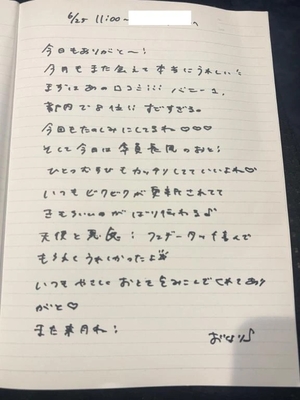 6/25 11:00~ へ
今日もありがと〜!
今月もまた会えて本当にうれしい!
まずはあの口コミ!!! バニーす、
部門で8位!! すごすぎる。
今回もたのしみにしてるね♡♡♡
そして今日は
ひとつもカッチリしてていいよね♡
いつもビクビクが更新されてて
きもちいのがばり伝わる♪
天使と悪魔! フェザータッチ喜んで
もらえてうれしかったよ
いつもやさしく おとをつみこんでくれてあり
がと♡
また来月ね!
おなり♪